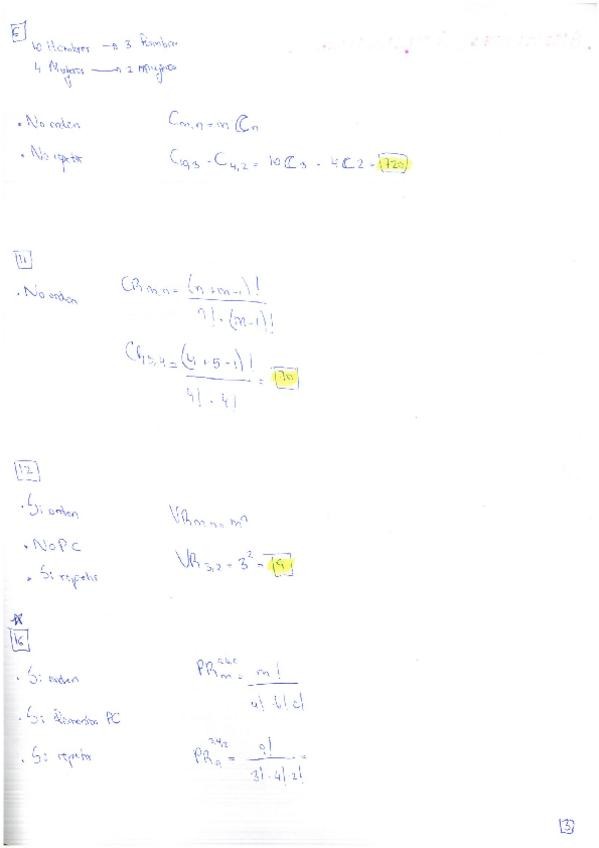 6
10 Hombres → 3 Hombres
4 Mujeres → 2 mujeres
• No orden
Cm,n = m C n
• No repetir
C10,3 · C4,2 = 10 C 3 · 4 C 2 = 720
11
• No orden
CRm,n = (n+m-1)! / n! · (m-1)!
CR5,4 = (4+5-1)! / 4! · 4! = 70
12
• Si orden
VRm,n = mⁿ
• No PC
VR3,2 = 3² = 9
• Si repetir
16
• Si orden
PRm a,b,c = m! / a! b! c!
• Si elementos PC
• Si repetir
PR9 3,4,2 = 9! / 3! · 4! 2! =
3